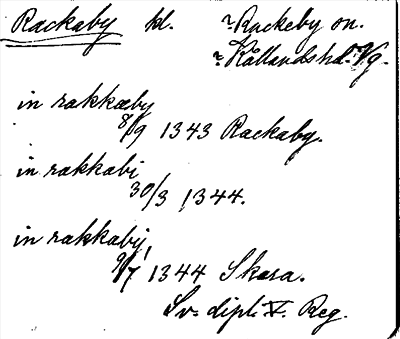 Rackaby kl. ~Rackeby sn.
~Kållandshd. Vg.
in rakkæby
8/9 1343 Rackaby.
in rakkabi
30/3 1344.
in rakkabij,
9/7 1344 Skara.
Sv. dipl. V. Reg.